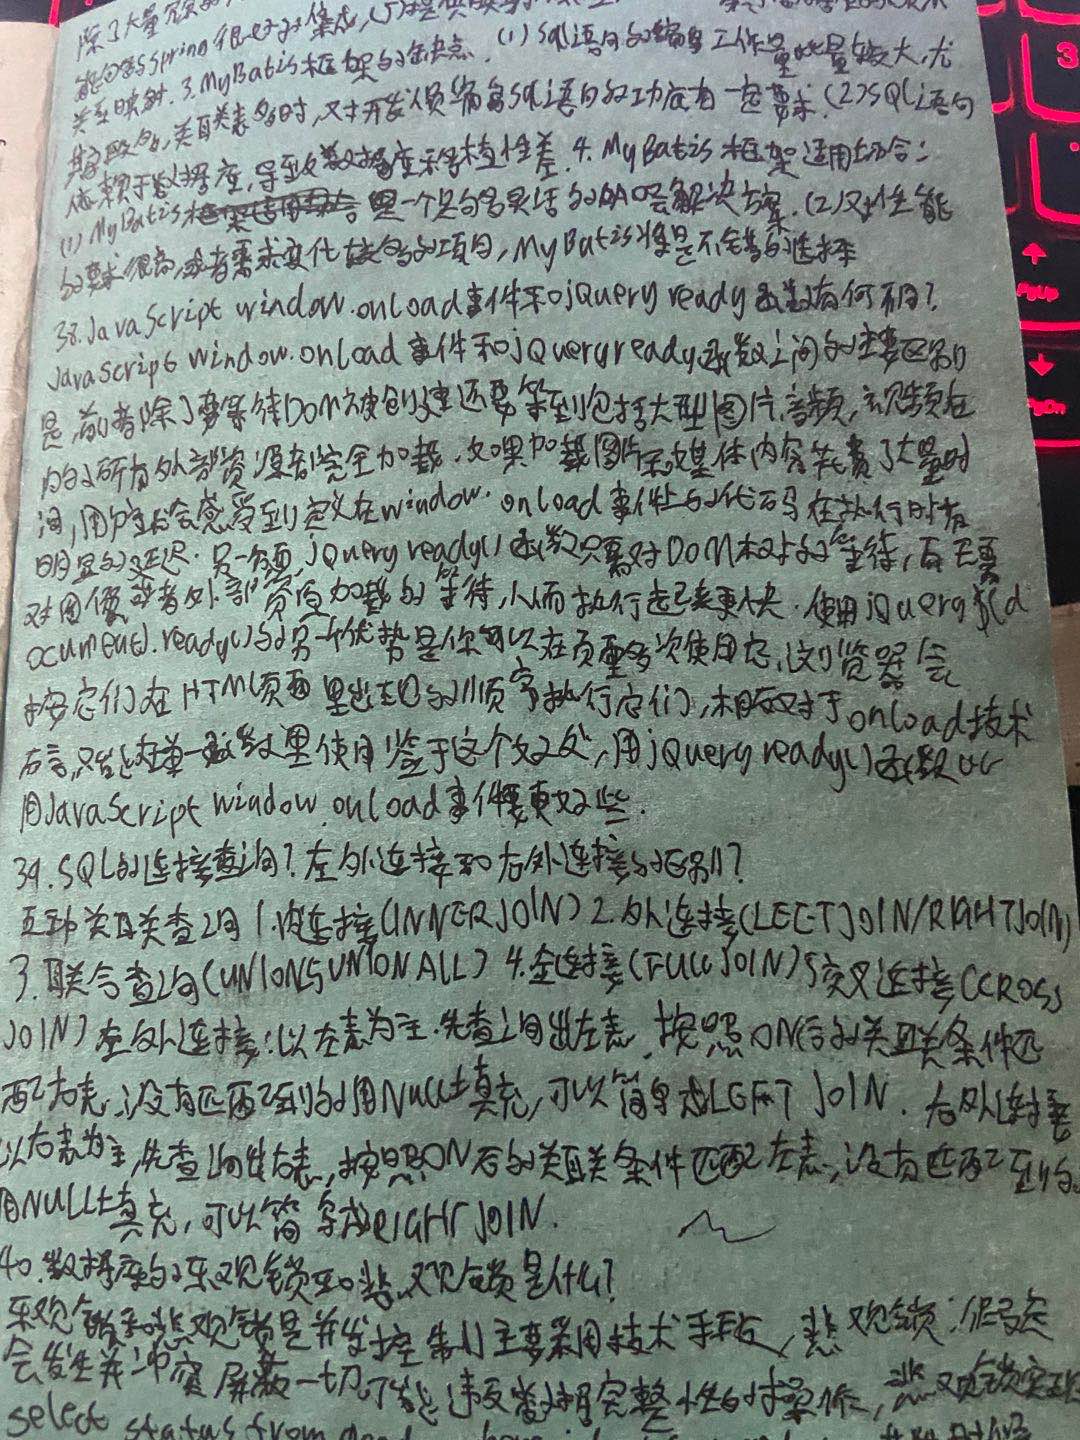 除了大量冗余的
能够与Spring很好的集成,(5)提供映射
关系映射. 3.MyBatis框架的缺点. (1) SQL语句的编写工作量较大,尤
其字段多,关联表多时,又对开发人员编写SQL语句的功底有一定要求.(2)SQL语句
依赖于数据库,导致数据库移植性差. 4. MyBatis框架适用场合:
(1) MyBatis 是一个足够灵活的DAO层解决方案.(2)对性能
的要求很高,或者需求变化较多的项目,MyBatis将是不错的选择
38.JavaScript window.onload事件和jQuery ready函数有何不同?
JavaScript window.onload 事件和jQuery ready函数之间的主要区别
是,前者除了要等待DOM被创建还要等到包括大型图片,音频,视频在
内的所有外部资源都完全加载.如果加载图片和媒体内容花费了大量时
间,用户就会感受到定义在window.onload事件上的代码在执行时有
明显的延迟.另一方面,jQuery ready()函数只需对DOM树的等待,而无需
对图像或者外部资源加载的等待,从而执行起来更快.使用jQuery $(d
ocument).ready()的另一个优势是你可以在页面多次使用它,浏览器会
按它们在HTML页面里出现的顺序执行它们,相反对于onload技术
而言,只能在单一函数里使用.鉴于这个好处,用jQuery ready()函数比
用JavaScript window.onload事件要更好些.
39.SQL的连接查询?左外连接和右外连接的区别?
五种关联查询 1.内连接(INNER JOIN) 2.外连接(LEFT JOIN/RIGHT JOIN)
3.联合查询(UNION与UNION ALL) 4.全连接(FULL JOIN) 5交叉连接(CROSS
JOIN) 左外连接:以左表为主.先查询出左表,按照ON后的关联条件匹
配右表,没有匹配到的用NULL填充,可以简写成LEFT JOIN. 右外连接
以右表为主,先查询出右表,按照ON后的关联条件匹配左表,没有匹配到的
用NULL填充,可以简写成RIGHT JOIN.
40.数据库的乐观锁和悲观锁是什么?
乐观锁和悲观锁是并发控制主要采用技术手段,悲观锁:假定
会发生并冲突屏蔽一切可能违反数据完整性的操作,悲观锁实现
select status from